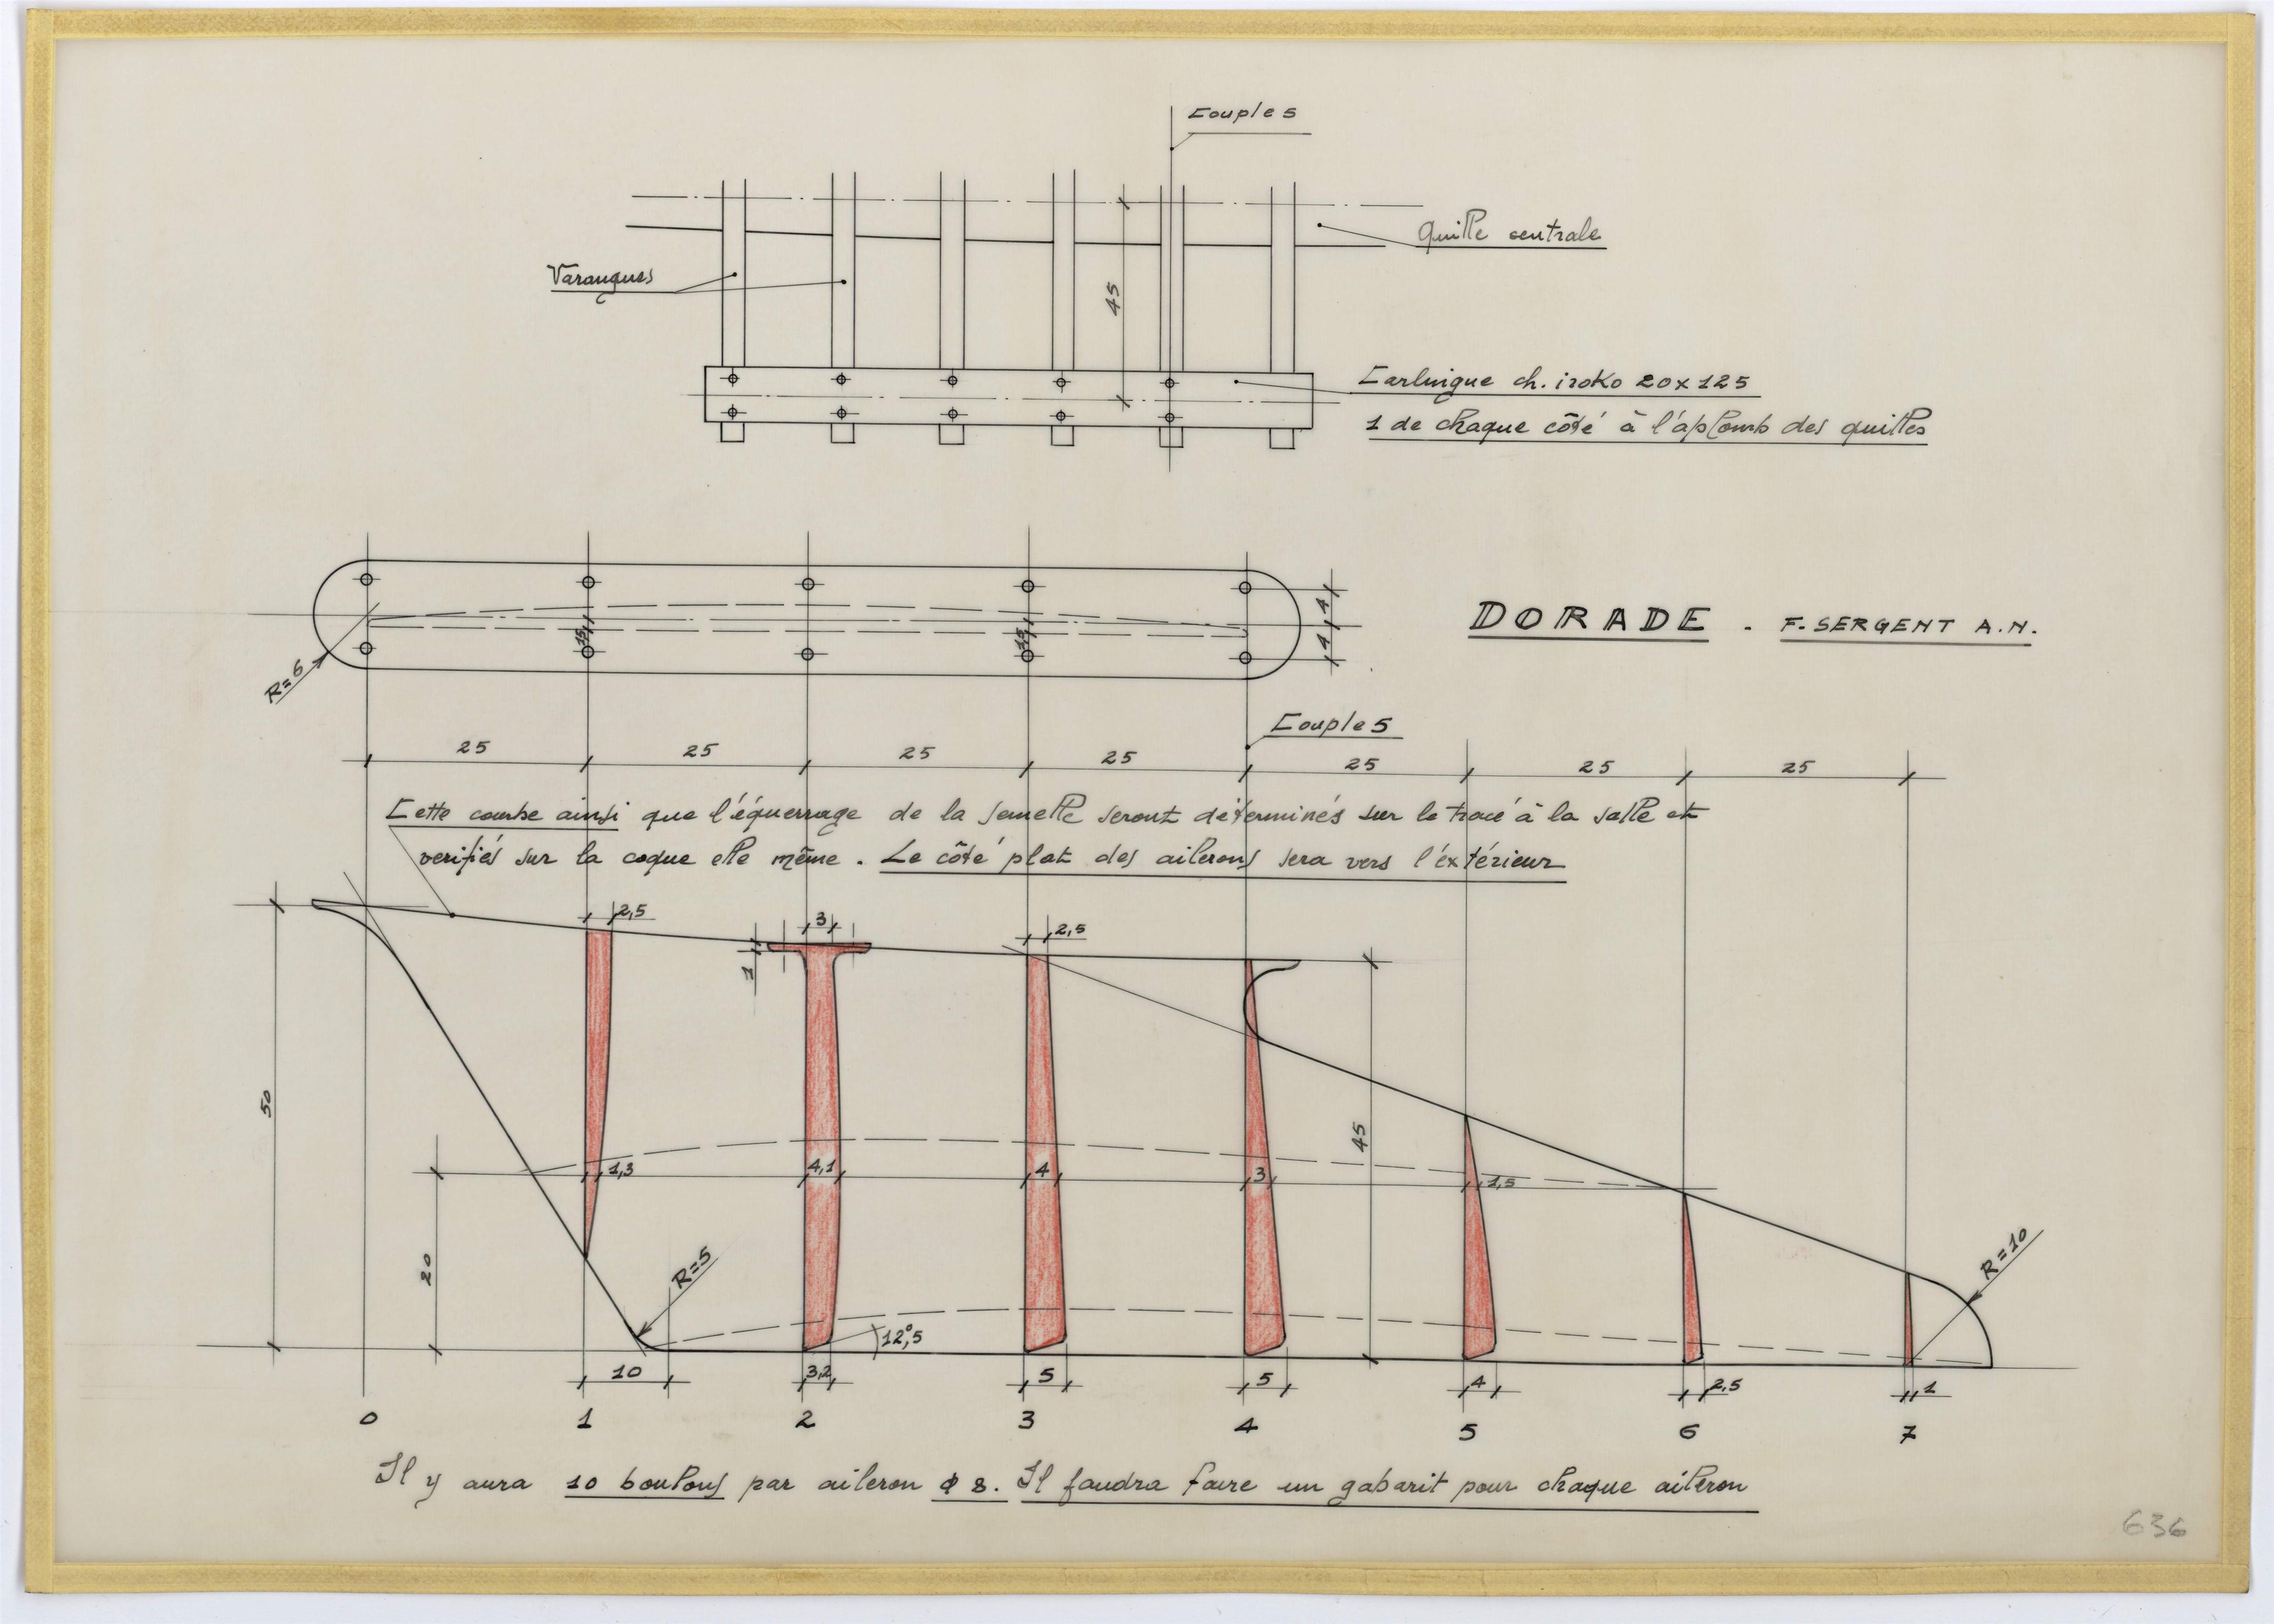 Couple 5
Quille centrale
Varangues
45
Carlingue ch. iroko 20x125
1 de chaque côté à l'aplomb des quilles
R=6
15
15
4
4
DORADE . F. SERGENT A.N.
Couple 5
25 25 25 25 25 25 25
Cette courbe ainsi que l'équerrage de la semelle seront déterminés sur le tracé à la salle et
verifiés sur la coque elle même . Le côté plat des ailerons sera vers l'éxtérieur
2,5 3 2,5
1
50
45
1,3 4,1 4 3 1,5
20
R=5
R=10
12°,5
10 3,2 5 5 4 2,5 1
0 1 2 3 4 5 6 7
Il y aura 10 boulons par aileron φ 8. Il faudra faire un gabarit pour chaque aileron
636